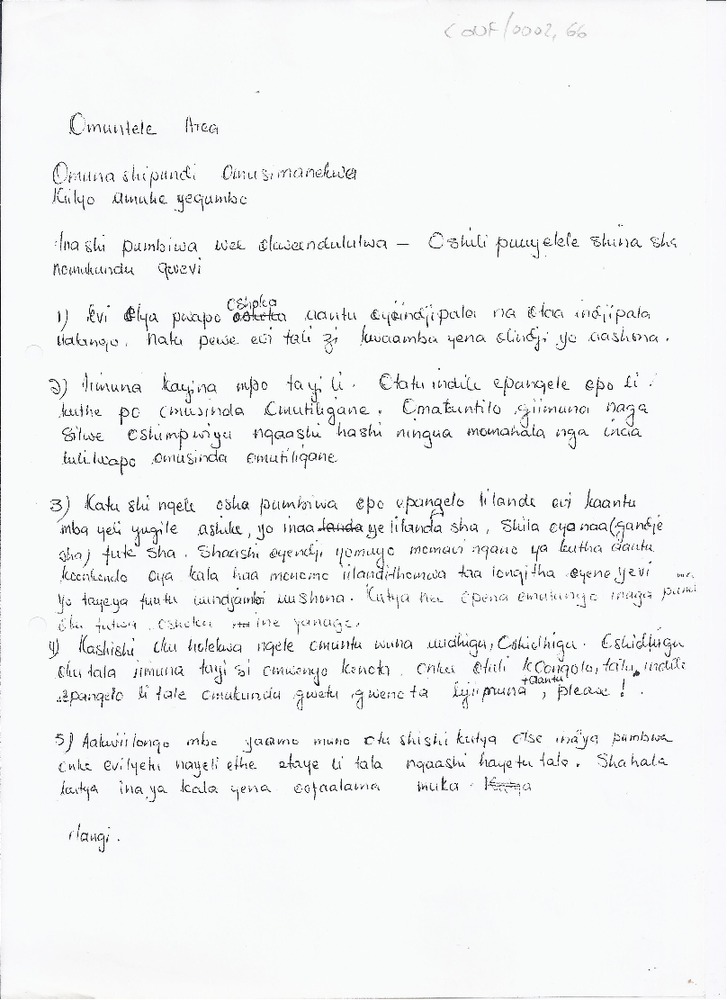 CONF/0002, 66
Omuntele Area
Omuna shipundi Omusimanekwa
Kiilyo Aniuke yegumbo
Inashi pumbiwa we okwendululwa – Oshili puuyelele shina sha
nomukundu gwevi
1) Evi olya pwapo oshoka aantu oyiindjipala na otaa indjipala
natango. Natu pewe evi tali zi kwaamba yena olindji yo aashona.
2) Iimuna kayina mpo tayi li. Otatu indile epangelo opo li
kuthe po omusinda Omutiligane. Omatuntilo giimuna naga
silwe oshimpwiyu ngaashi hashi ningwa momahala nga inaa
tulilwapo omusinda omutiligane
3) Katu shi ngele osha pumbiwa opo epangelo lilande evi kaantu
mba yeli yugile ashike, yo inaa ye lilanda sha, Shila oya naa (gandje
sha) fute sha. Shaashi oyendji yomuyo momavi ngano ya kutha aantu
koonkondo oya kala haa monomo iilandithomwa taa longitha oyene yevi
yo tayeya futu iindjambi uushona. Katya na opena omutungo inaga pumb
oku futwa oshoka ine yanage.
4) Kashishi oku holekwa ngele omuntu wuna uudhigu, Oshidhigu. Oshidhigu
oku tala iimuna tayi si omwenyo kenota. onke otuli kOongolo, tatu indile
epangelo li tale omukundu gwetu gwenota lyiimuna + aantu, please!
5) Aakwiilongo mbo yaamo muno otu shishi kutya otse inaya pumbwa
onke evi lyetu nayeli ethe otaye li tala ngaashi hayetu tala. Shahala
kutya inaya kala yena oofaalama muka
Tangi.